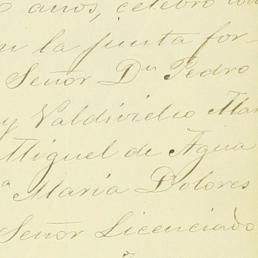 años, celebro
en la junta for-
Señor Dn Pedro
y Valdivielso Mar
Miguel de Agua
a María Dolores
Señor Licenciado